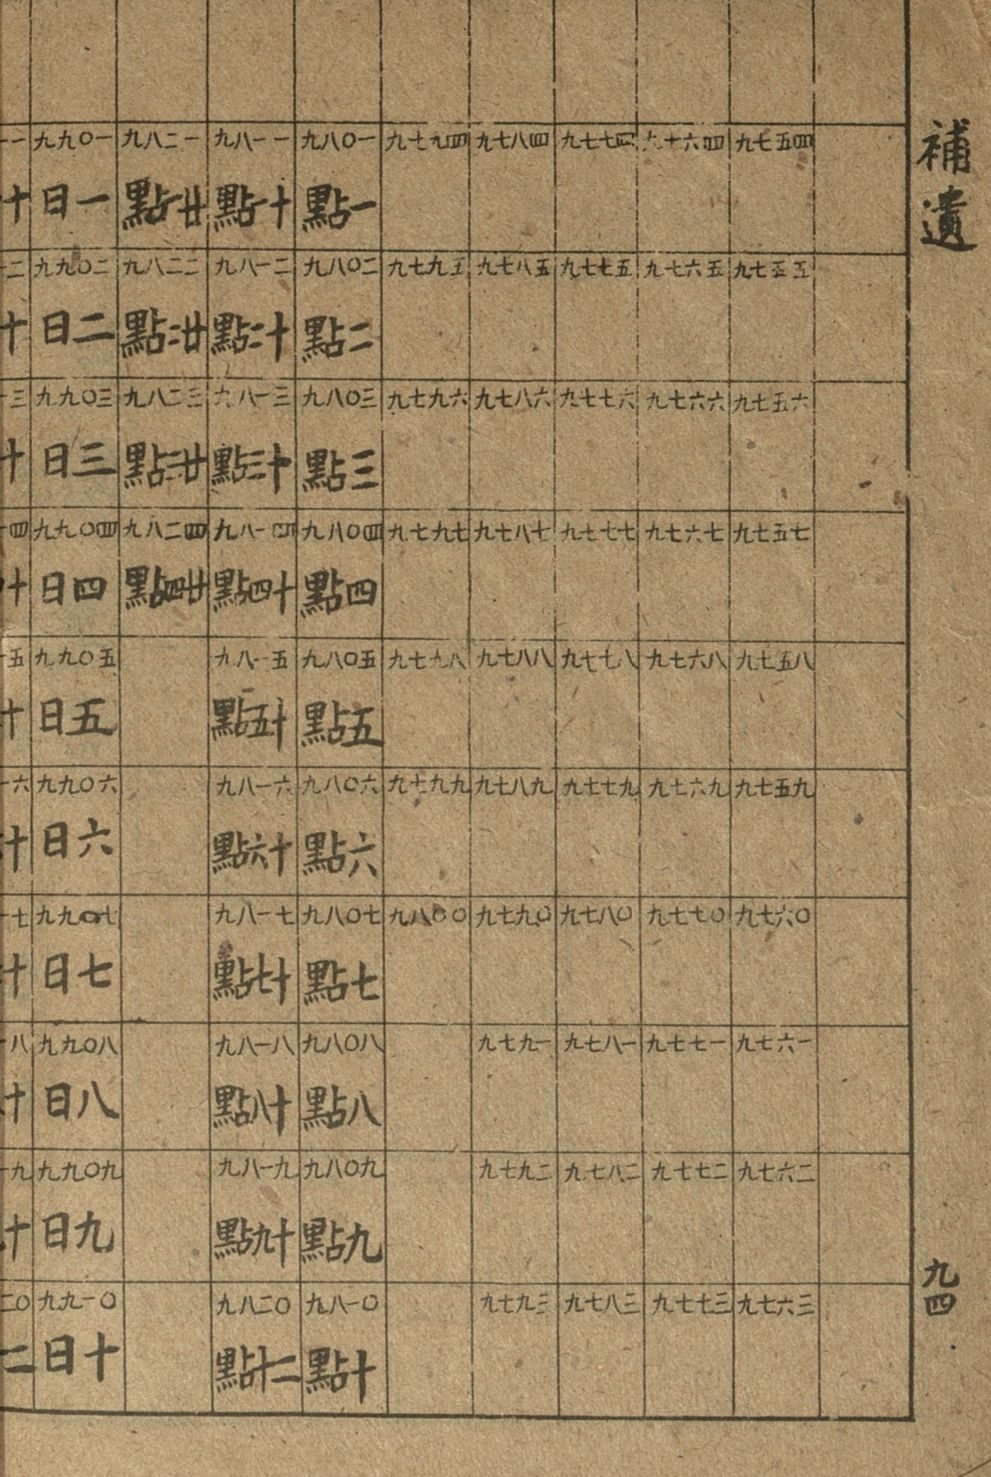 補遺
九四
九七五四
九七五五
九七五六
九七五七
九七五八
九七五九
九七六〇
九七六一
九七六二
九七六三
九七六四
九七六五
九七六六
九七六七
九七六八
九七六九
九七七〇
九七七一
九七七二
九七七三
九七七四
九七七五
九七七六
九七七七
九七七八
九七七九
九七八〇
九七八一
九七八二
九七八三
九七八四
九七八五
九七八六
九七八七
九七八八
九七八九
九七九〇
九七九一
九七九二
九七九三
九七九四
九七九五
九七九六
九七九七
九七九八
九七九九
九八〇〇
九八〇一
一點
九八〇二
二點
九八〇三
三點
九八〇四
四點
九八〇五
五點
九八〇六
六點
九八〇七
七點
九八〇八
八點
九八〇九
九點
九八一〇
十點
九八一一
十一點
九八一二
十二點
九八一三
十三點
九八一四
十四點
九八一五
十五點
九八一六
十六點
九八一七
十七點
九八一八
十八點
九八一九
十九點
九八二〇
二十點
九八二一
廿一點
九八二二
廿二點
九八二三
廿三點
九八二四
廿四點
九九〇一
一日
九九〇二
二日
九九〇三
三日
九九〇四
四日
九九〇五
五日
九九〇六
六日
九九〇七
七日
九九〇八
八日
九九〇九
九日
九九一〇
十日